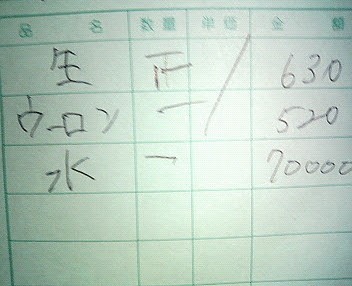 品名 数量 単価 金額
生 正 630
ウーロン 一 520
水 一 70000